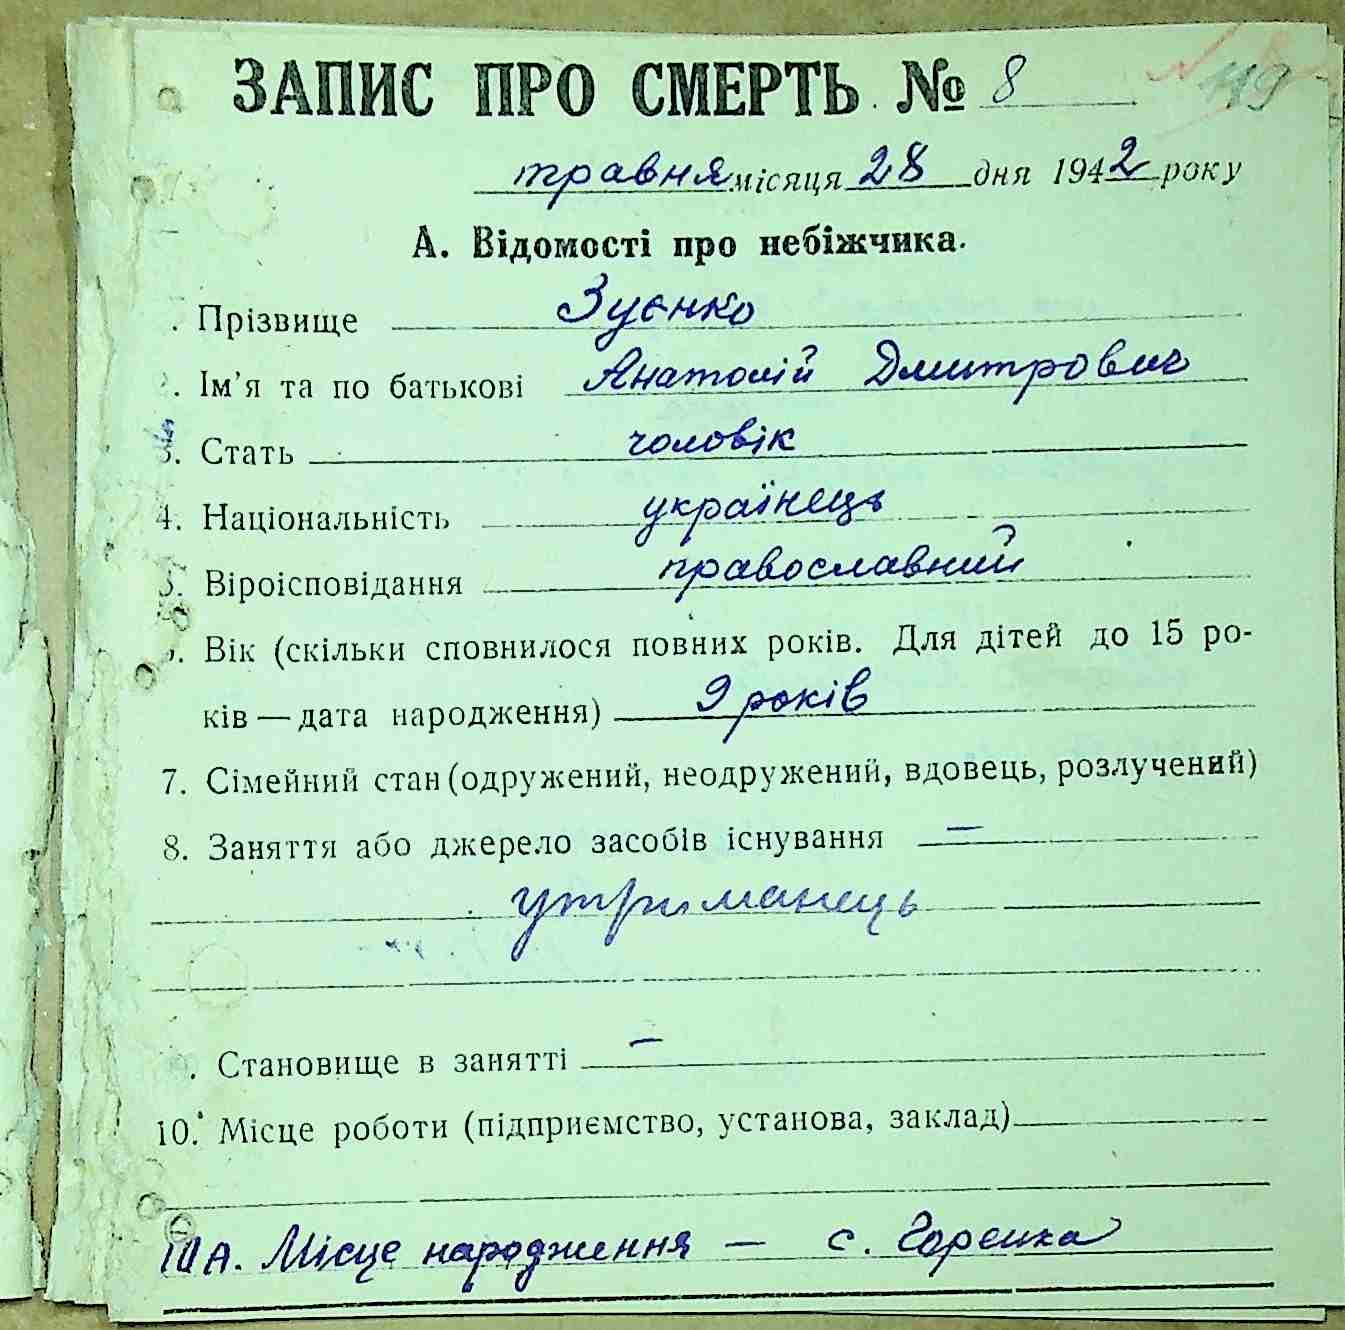 ЗАПИС ПРО СМЕРТЬ № 8
119
травня місяця 28 дня 1942 року
А. Відомості про небіжчика.
. Прізвище Зуєнко
2. Ім’я та по батькові Анатолій Дмитрович
3. Стать чоловік
4. Національність українець
5. Віроісповідання православний
. Вік (скільки сповнилося повних років. Для дітей до 15 ро-
ків — дата народження) 9 років
7. Сімейний стан (одружений, неодружений, вдовець, розлучений)
8. Заняття або джерело засобів існування —
утриманець
. Становище в занятті —
10. Місце роботи (підприємство, установа, заклад)
10А. Місце народження — с. Горенка